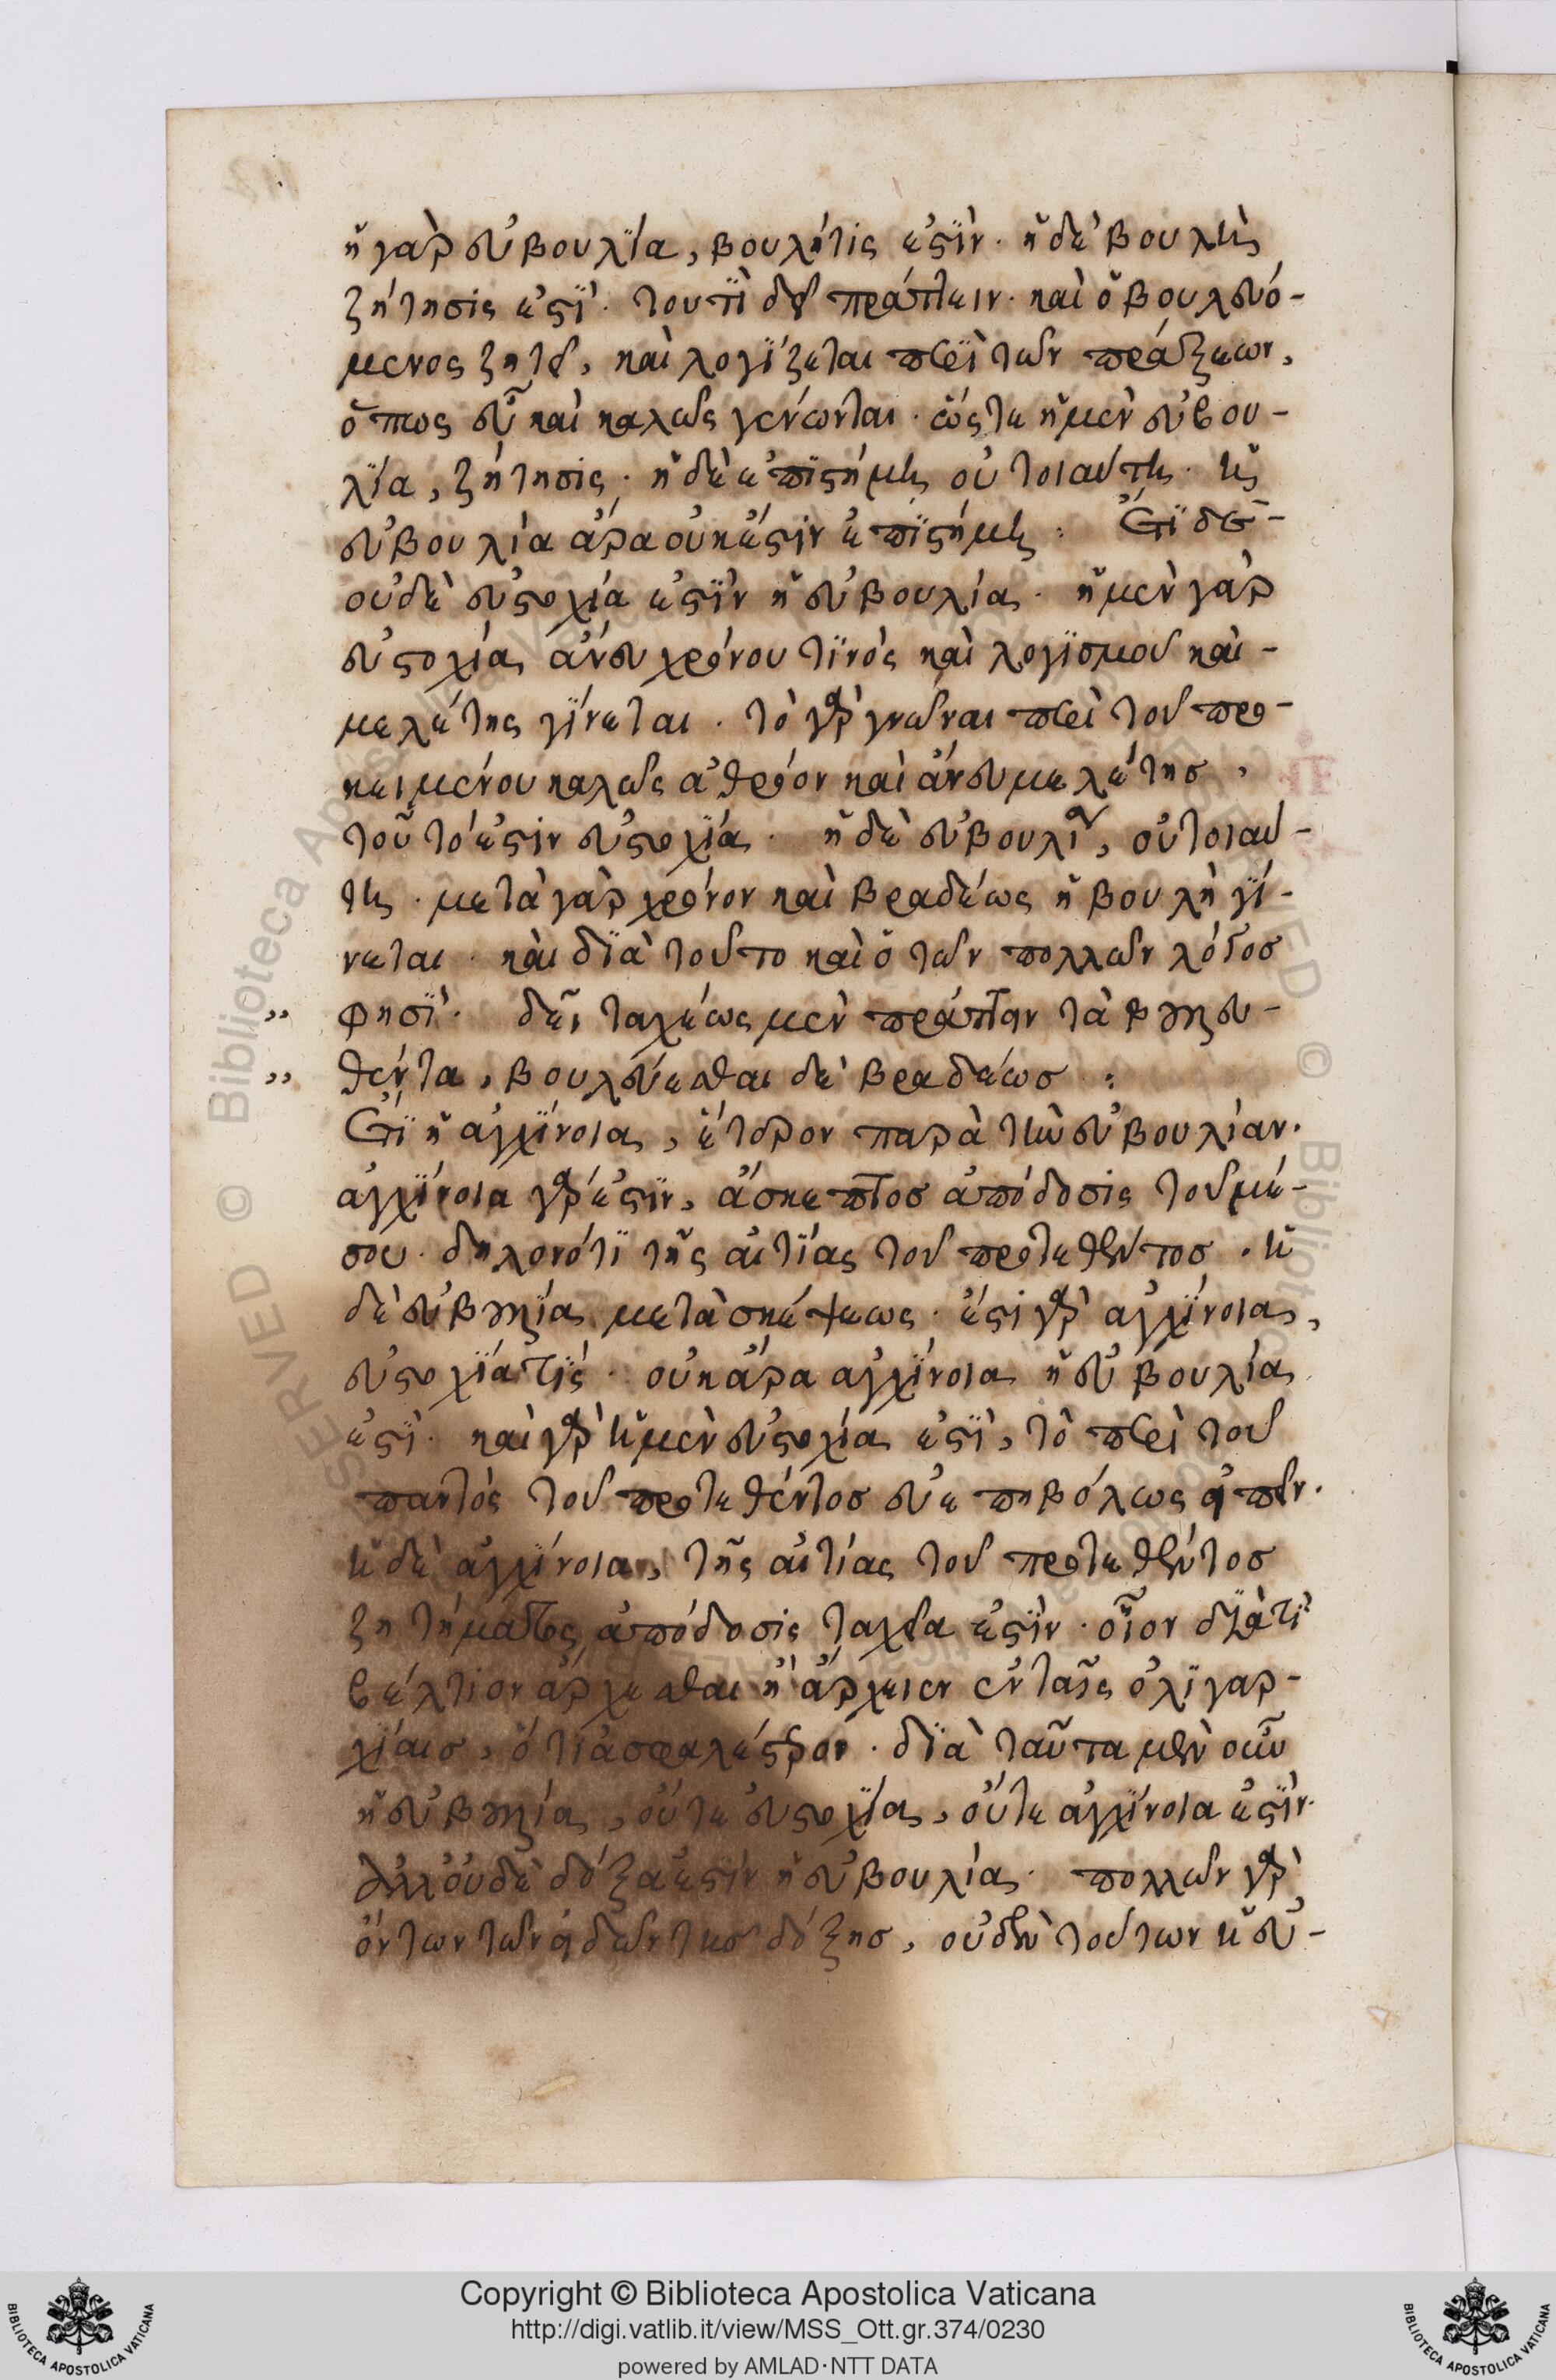 ἡ γὰρ εὐβουλϊα, βουλή τις ἐστὶν· ἡ δὲ βουλὴ
ζήτησις ἐστὶ· του τί δεῖ πράττειν· καὶ ὁ βουλευό-
μενος ζητεῖ, καὶ λογίζεται περὶ τῶν πράξεων,
ὅπως εὖ καὶ καλῶς γένωνται· ὥστε ἡ μὲν εὐβου-
λία, ζήτησις· ἡ δὲ ἐπιστήμη οὐ τοιαύτη· ἡ
εὐβουλία ἄρα οὐκ ἔστιν ἐπιστήμη: Ἔτι δὲ-
οὐδὲ εὐστοχία ἐστὶν ἡ εὐβουλία· ἡ μὲν γὰρ
εὐστοχία, ἄνευ χρόνου τινὸς καὶ λογισμοῦ καὶ-
μελέτης γίνεται· τὸ γὰρ γνῶναι περὶ τοῦ προ-
κειμένου καλῶς ἀθρόον καὶ ἄνευ μελέτης,
τοῦτό ἐστιν εὐστοχία· ἡ δὲ εὐβουλία, οὐ τοιαύ-
τη· μετὰ γὰρ χρόνον καὶ βραδέως ἡ βουλὴ γί-
νεται· καὶ διὰ τοῦτο καὶ ὁ τῶν πολλῶν λόγος
„ φησὶ· δεῖν ταχέως μὲν πράττειν τὰ βουλευ-
„ θέντα, βουλεύεσθαι δὲ βραδέως:
Ἔτι ἡ ἀγχίνοια, ἕτερον παρὰ τὴν εὐβουλίαν·
ἀγχίνοια γάρ ἐστιν, ἄσκεπτος ἀπόδοσις τοῦ μέ-
σου· δηλονότι τῆς αἰτίας τοῦ προτεθέντος· ἡ
δὲ εὐβουλία μετὰ σκέψεως· ἔστι γὰρ ἀγχίνοια,
εὐστοχία τίς· οὐκ ἄρα ἀγχίνοια ἡ εὐβουλία
ἐστὶ· καὶ γὰρ ἡ μὲν εὐστοχία ἐστὶ, τὸ περὶ τοῦ
παντὸς τοῦ προτεθέντος εὐεπηβόλως εἰπεῖν·
ἡ δὲ ἀγχίνοια, τῆς αἰτίας τοῦ προτεθέντος
ζητήματος ἀπόδοσις ταχεῖα ἐστὶν· οἷον διὰ τί
βέλτιον ἄρχεσθαι ἢ ἄρχειεν ἐν ταῖς ὀλιγαρ-
χίαις, ὅτι ἀσφαλέστερον· διὰ ταῦτα μὲν οὖν
ἡ εὐβουλία, οὔτε εὐστοχία, οὔτε ἀγχίνοια ἐστὶν·
ἀλλ' οὐδὲ δόξα ἐστὶν ἡ εὐβουλία· πολλῶν γὰρ
ὄντων τῶν εἰδῶν τῆς δόξης, οὐδὲν τούτων ἡ εὐ-
Copyright © Biblioteca Apostolica Vaticana
http://digi.vatlib.it/view/MSS_Ott.gr.374/0230
powered by AMLAD·NTT DATA